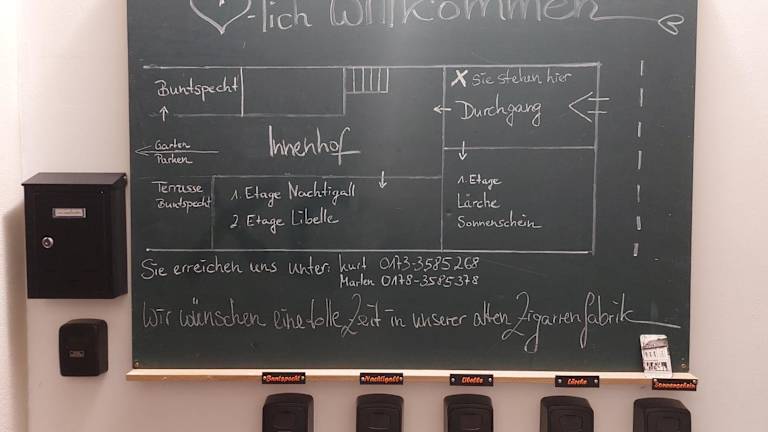 -lich Willkommen
Buntspecht
X Sie stehen hier
Durchgang
Innenhof
Garten
Parken
Terrasse
Buntspecht
1. Etage Nachtigall
2. Etage Libelle
1. Etage
Lärche
Sonnenschein
Sie erreichen uns unter: Kurt 0173-3585268
Marlen 0178-3585378
Wir wünschen eine tolle Zeit in unserer alten Zigarrenfabrik
Buntspecht
Nachtigall
Libelle
Lärche
Sonnenschein